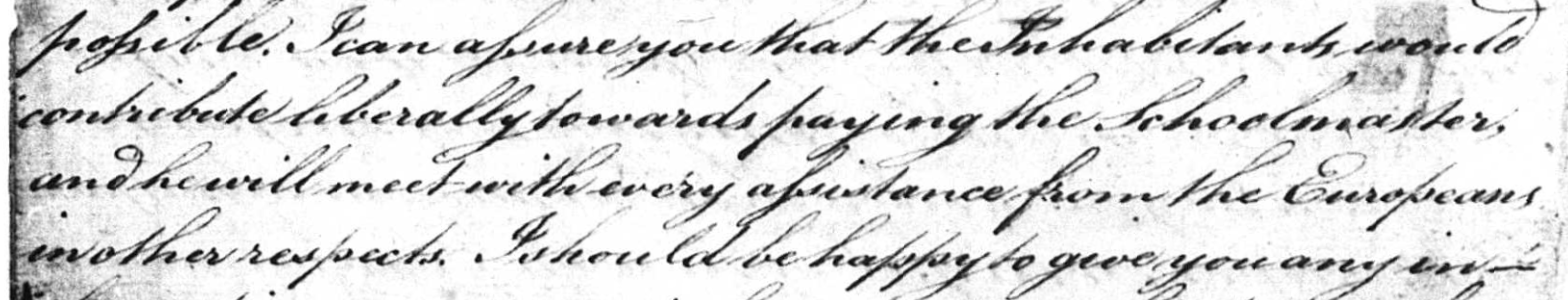 possible. I can assure you that the Inhabitants would
contribute liberally towards paying the Schoolmaster,
and he will meet with every assistance from the Europeans
in other respects. I should be happy to give you any in-